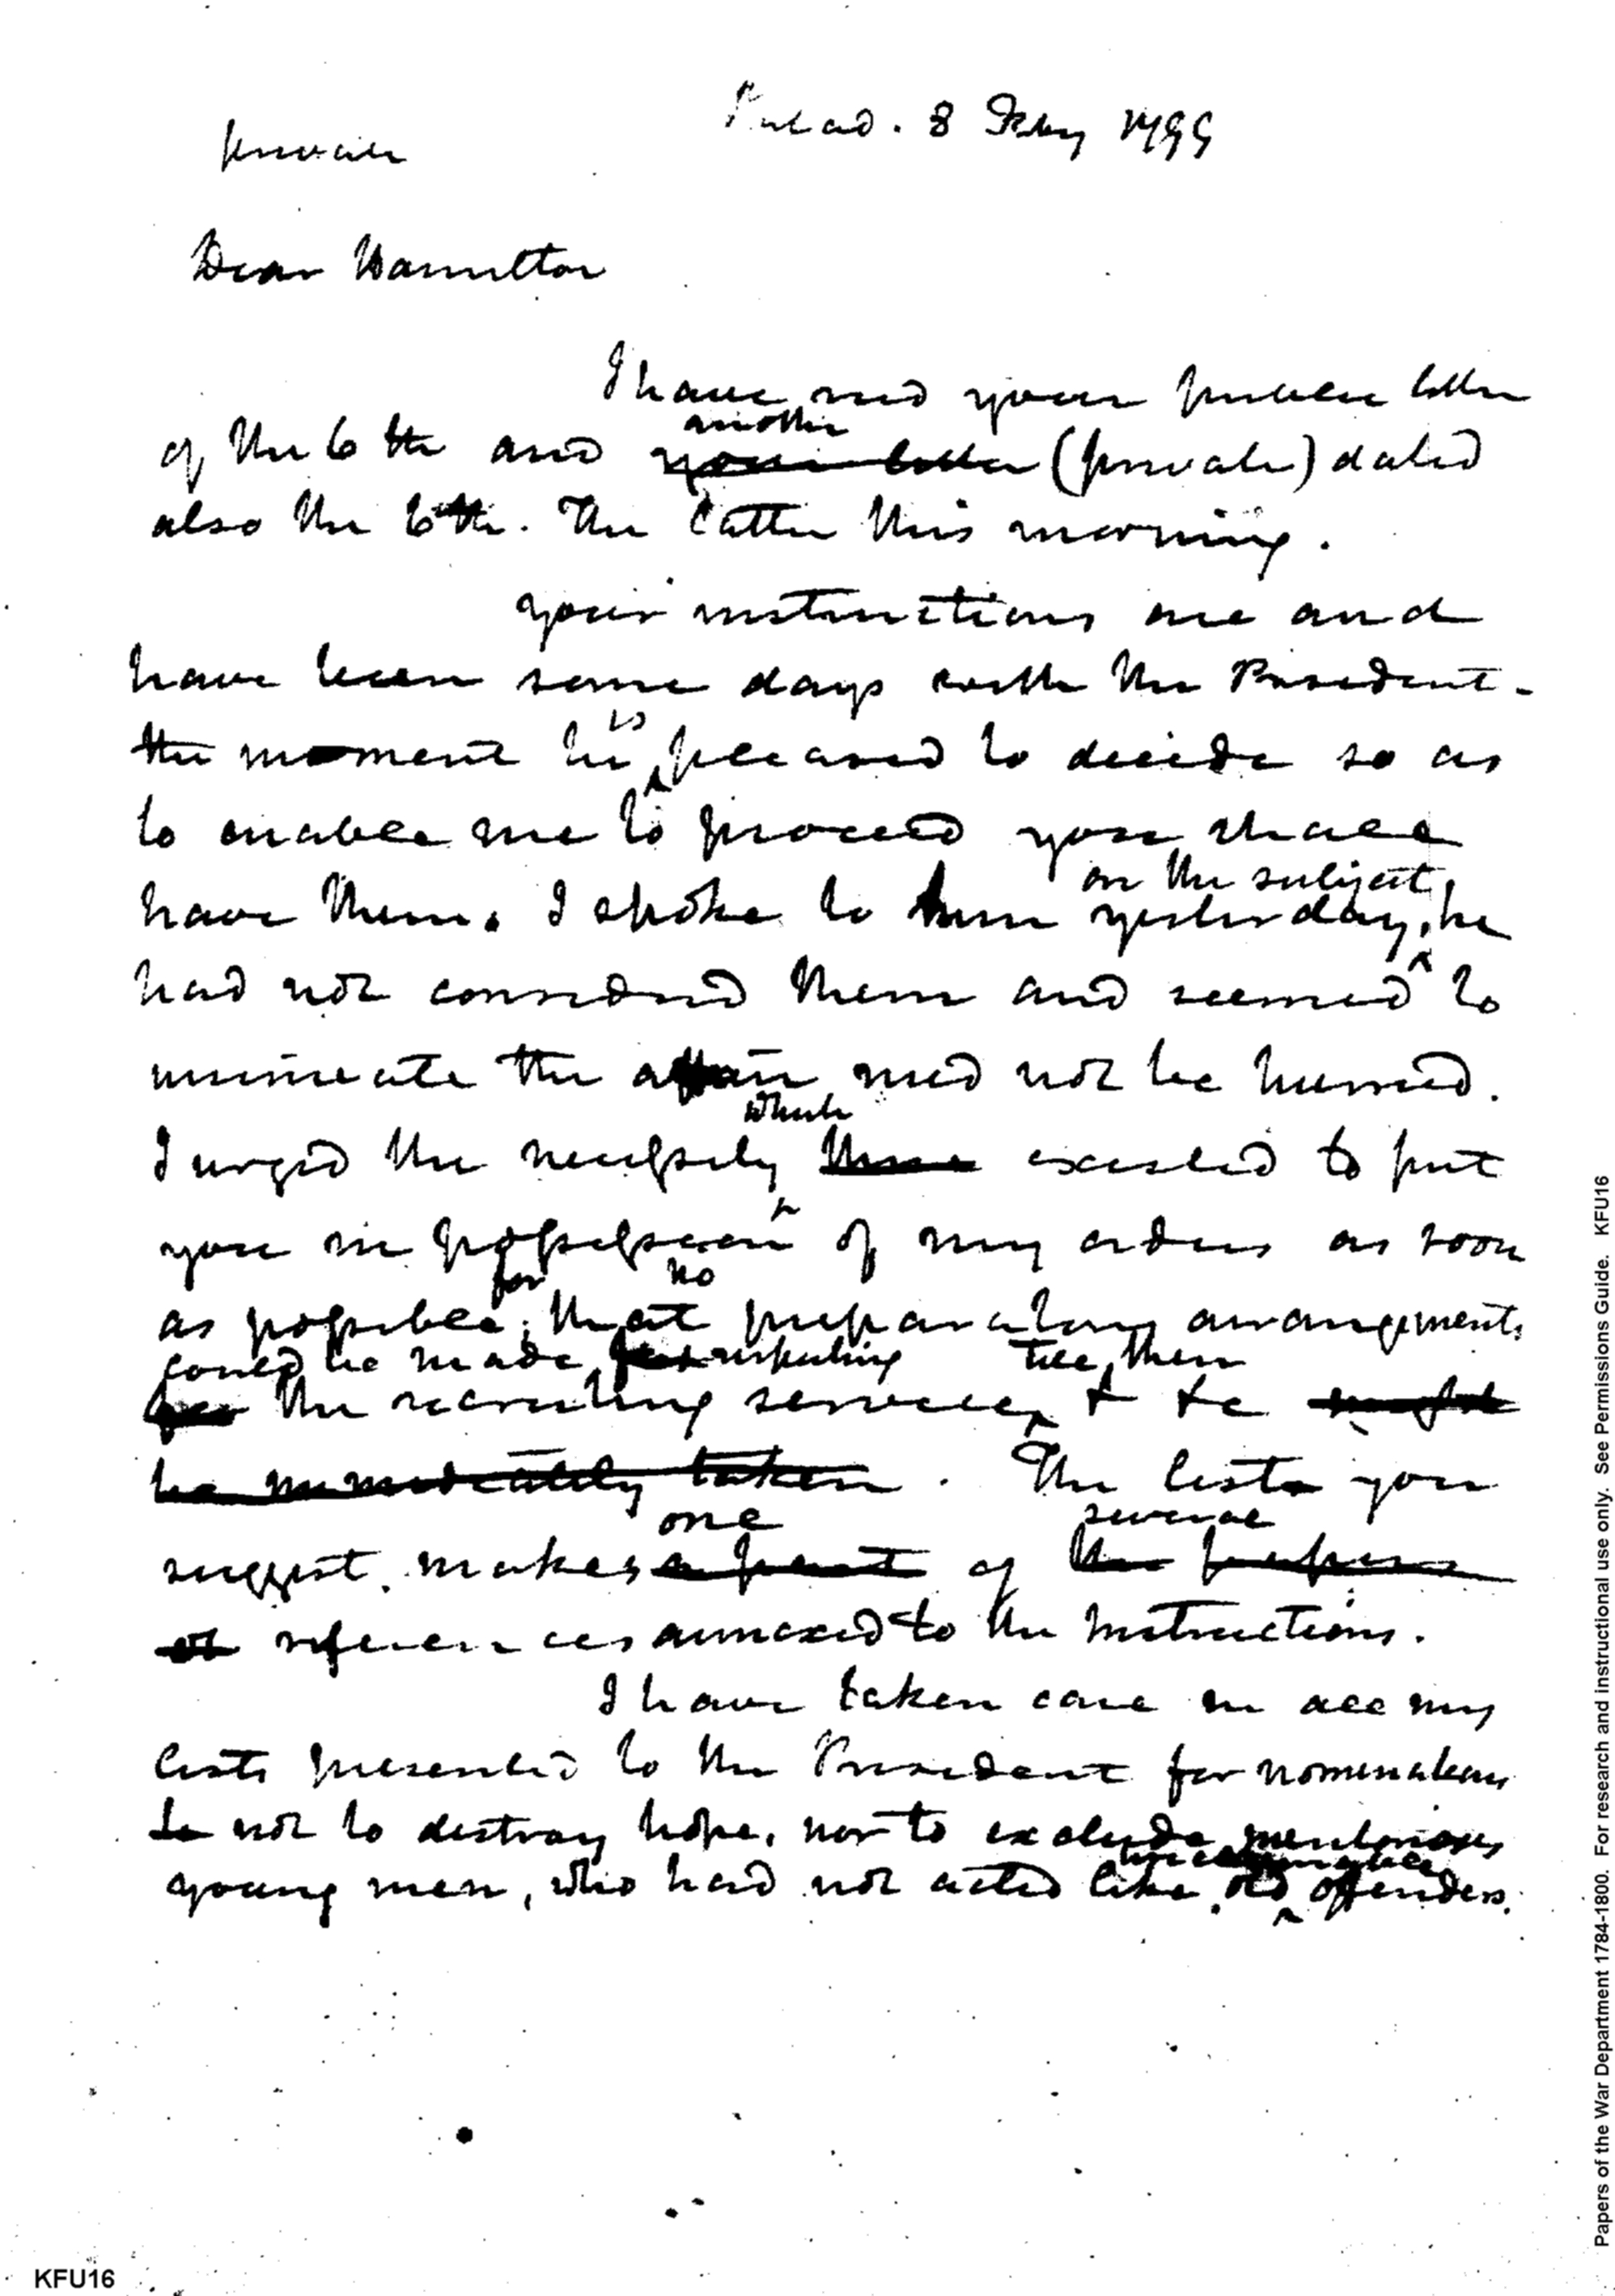 Philad. 8 Feby 1799
private
Dear Hamilton
I have recd your public letter
another
of the 6th and your letter (private) dated
also the 6th. The latter this morning.
your instructions are and
have been some days with the President-
is
the moment he pleased to decide so as
to enable me to proceed you shall
on the subject,
have them. I spoke to him yesterday, he
had not considered them and seemed to
insinuate the affair need not be hurried.
which
I urged the necessity there existed to put
you in possession of my orders as soon
for no
as possible; that preparatory arrangements
could be made respecting till then
for the recruiting service, & &c might
be immediately taken. The list you
one several
suggest makes a part of the papers
or references annexed to the Instructions.
I have taken care in all my
lists presented to the President for nominations
to not to destroy hope, nor to exclude meritorious
young men, who had not acted like old offenders.
Papers of the War Department 1784-1800. For research and instructional use only. See Permissions Guide. KFU16
KFU16